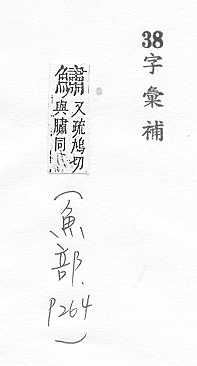 38
字彙補
又疏鳩切
與 同
(魚部.
P264)